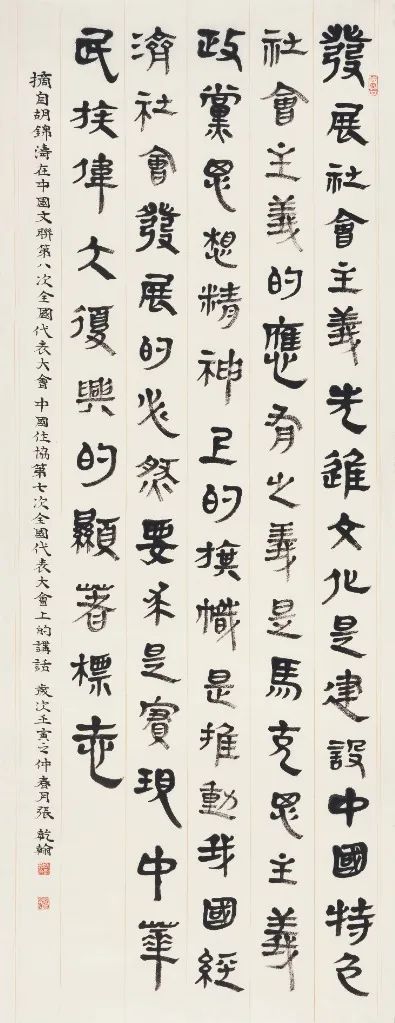 發展社會主義先進文化是建設中國特色
社會主義的應有之義是馬克思主義
政黨思想精神上的旗幟是推動我國經
濟社會發展的必然要求是實現中華
民族偉大復興的顯著標志
摘自胡錦濤在中國文聯第八次全國代表大會中國作協第七次全國代表大會上的講話歲次壬寅之仲春月張乾翰